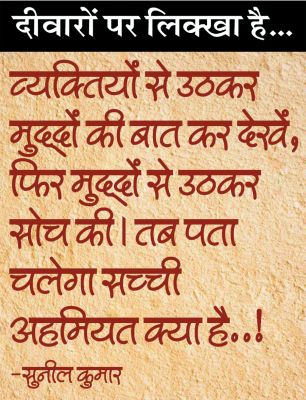 दीवारों पर लिक्खा है...
व्यक्तियों से उठकर
मुद्दों की बात कर देखें,
फिर मुद्दों से उठकर
सोच की। तब पता
चलेगा सच्ची
अहमियत क्या है..!
-सुनील कुमार